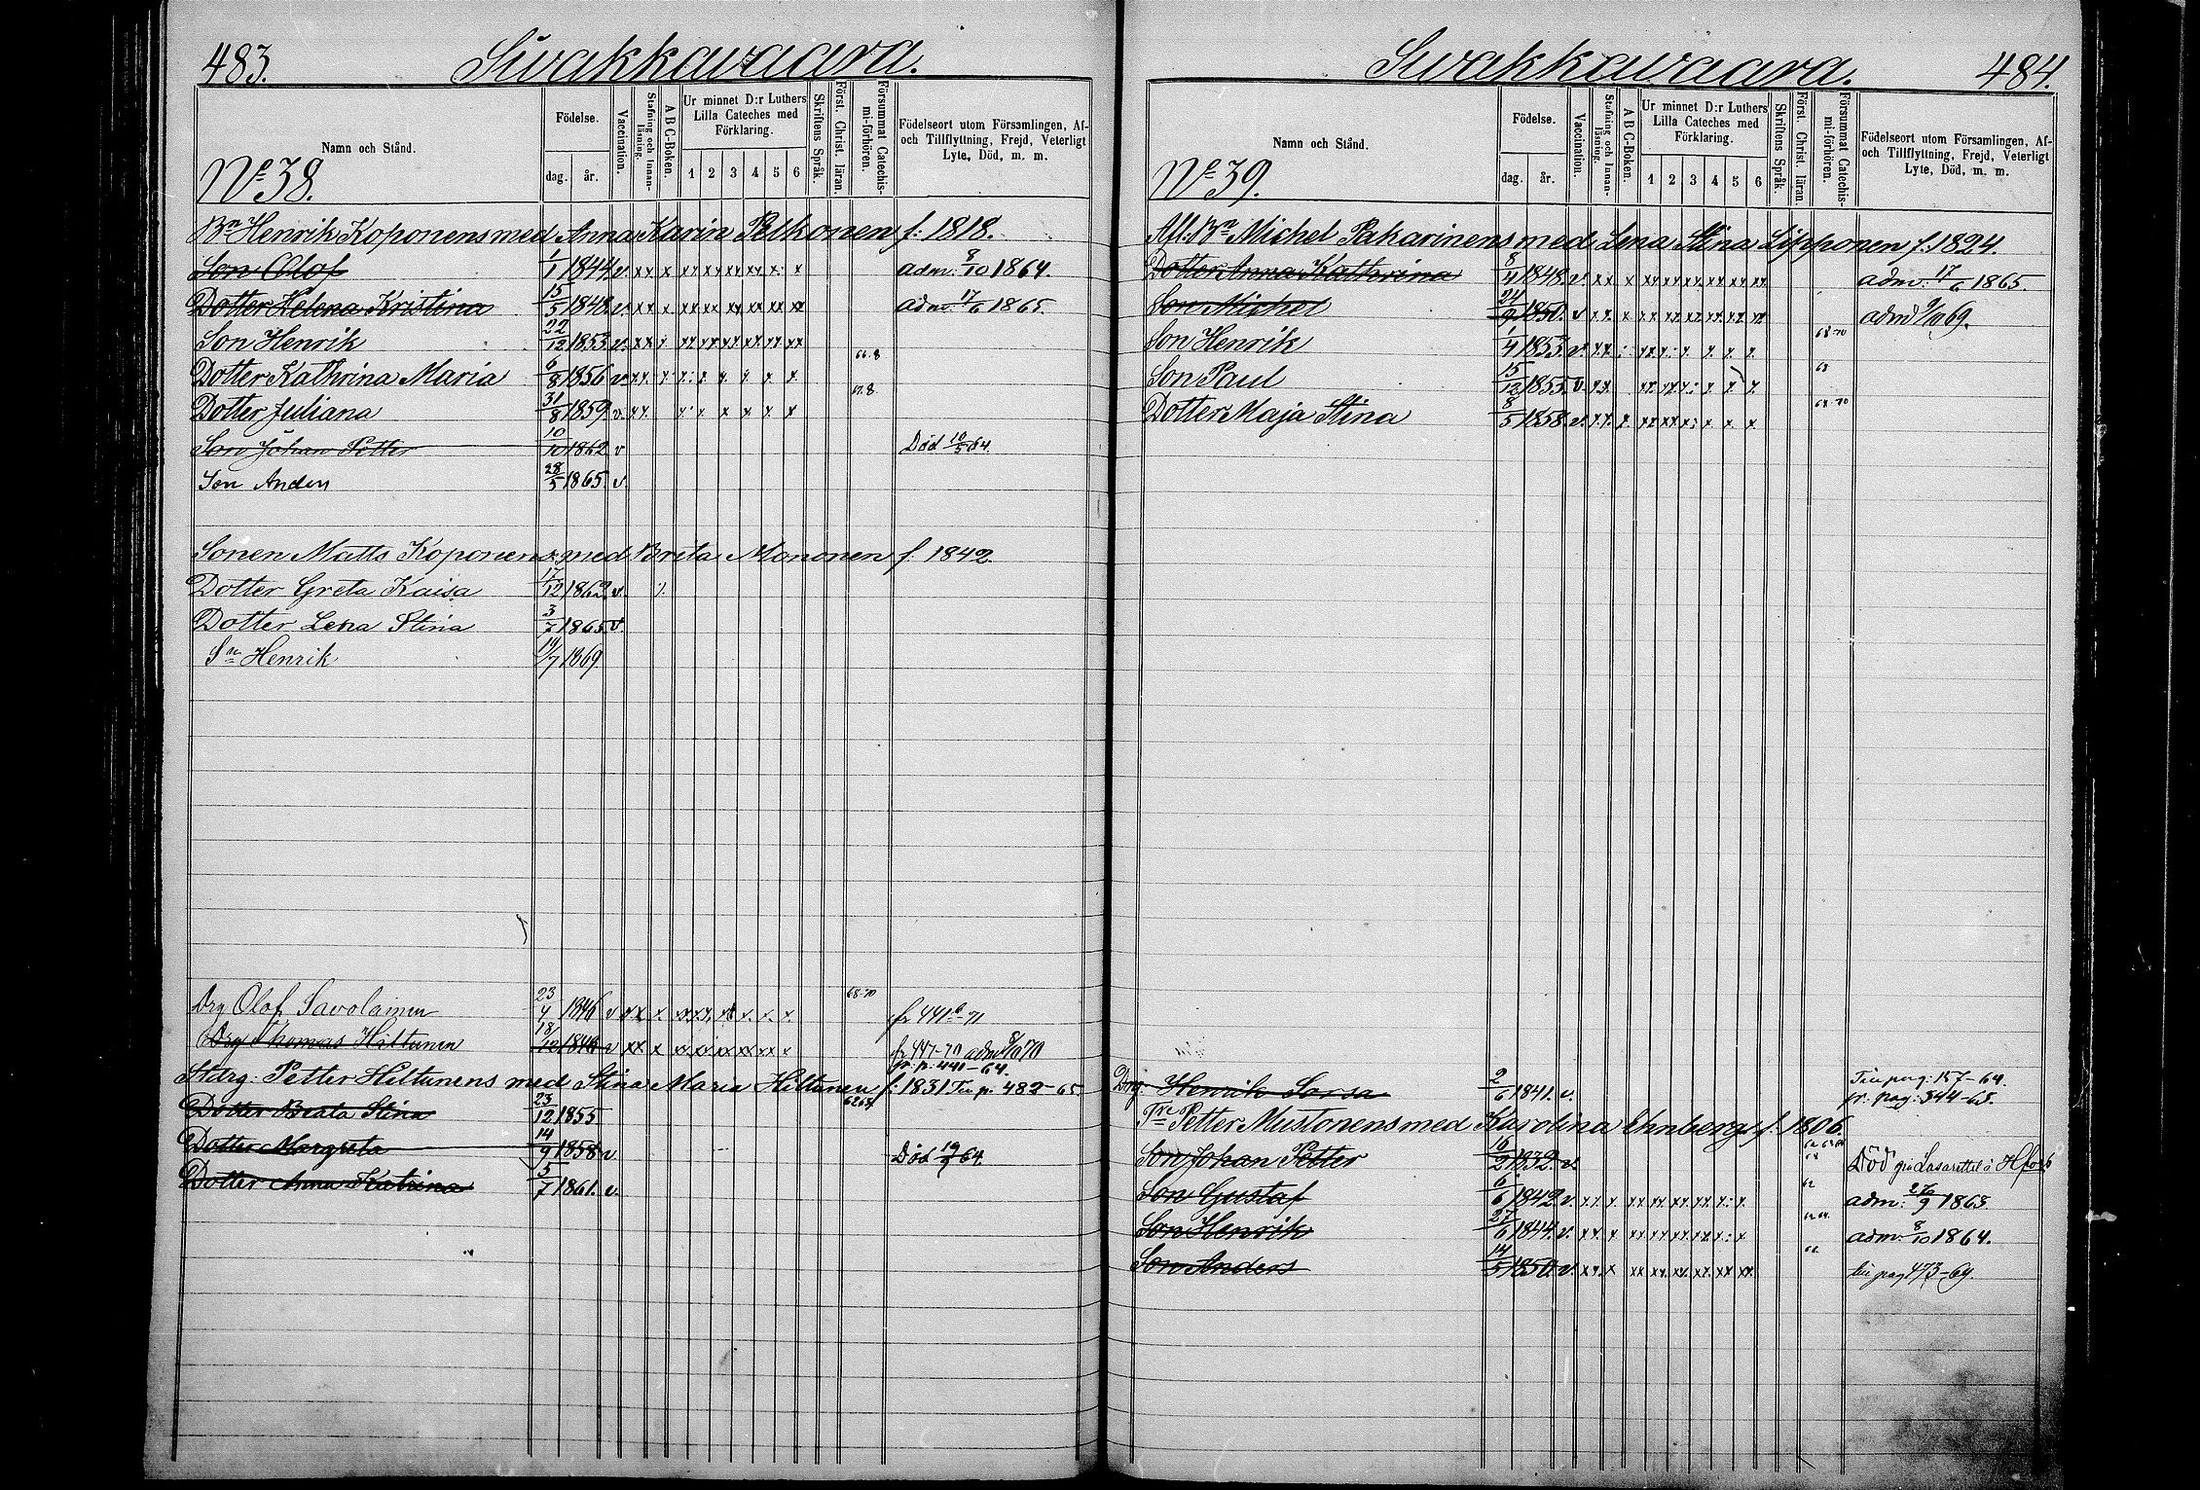 483. Siwakkawaara.
Namn och Stånd.
Födelse.
dag. år.
Vaccination.
Stafning och Innanläsning.
A B C-Boken.
Ur minnet D:r Luthers Lilla Cateches med Förklaring.
1 2 3 4 5 6
Skriftens Språk.
Först. Christ. läran.
Försummat Catechismi-förhören.
Födelseort utom Församlingen, Af- och Tillflyttning, Frejd, Veterligt Lyte, Död, m. m.
No 38.
Bn Henrik Koponens med Anna Karin Pelkonen f: 1818.
Son Olof 1/1 1844 v. xx x xx xx xx xx x. x adm: 8/10 1864.
Dotter Helena Kristina 15/5 1848 v. xx x xx xx xx xx xx xx adm: 17/6 1865.
Son Henrik 22/12 1853 v. xx
Dotter Kathrina Maria 6/8 1856 v. 66.8
Dotter Juliana 31/8 1859 v. xx 67.8.
Son Johan Petter 10/10 1862 v Död 10/5 64.
Son Anders 28/5 1865. v.
Sonen Matts Koponens med Breta Mononen f: 1842.
Dotter Greta Kaisa 17/12 1862. v.
Dotter Lena Stina 3/7 1865 v.
Sn Henrik 14/7 1869
Drg Olof Savolainen 23/4 1846 v 68-70 fr 441 -71
Drg Thomas Hiltunen 18/12 1848 v xx x fr 447-70 adm 8/10 70
fr: p: 441-64.
Hdrg: Petter Hiltunens med Stina Maria Hiltunen f: 1831 Tin p: 482-65
Dotter Beata Stina 23/12 1855
Dotter Margreta 14/9 1858 v Död 19/9 64.
Dotter Anna Katrina 5/7 1861. v.
Siwakkawaara. 484.
Namn och Stånd.
Födelse.
dag. år.
Vaccination.
Stafning och Innanläsning.
A B C-Boken.
Ur minnet D:r Luthers Lilla Cateches med Förklaring.
1 2 3 4 5 6
Skriftens Språk.
Först. Christ. läran.
Försummat Catechismi-förhören.
Födelseort utom Församlingen, Af- och Tillflyttning, Frejd, Veterligt Lyte, Död, m. m.
No 39.
Afl. Bn Michel Pakarinens med Lena Stina Lipponen f: 1824.
Dotter Anna Katherina 8/4 1848. v. xx x xx xx xx xx xx xx adm: 17/6 1865.
Son Michel 24/9 1850. v xx x xx xx xx xx xx xx adm 9/10 69.
Son Henrik 1/4 1853. v. 68-70
Son Paul 15/12 1855. v. xx 68
Dotter Maja Stina 8/5 1858. v. 68-70
Drg: Henrik Sorsa 2/6 1841. v. Tin pag: 157-64.
fr: pag: 344-65.
Petter Mustonens med Karolina Ehnberg f: 1806.
Son Johan Petter 16/2 1832. v. Död på Lasarettet i Hfors
Son Gustaf 6/6 1842 v. 62 adm: 26/9 1863.
Son Henrik 27/6 1844. v. adm: 8/10 1864.
Son Anders 14/5 1850. v. xx. x xx xx. xx. xx. xx xx. 62 tin pag 473-64.